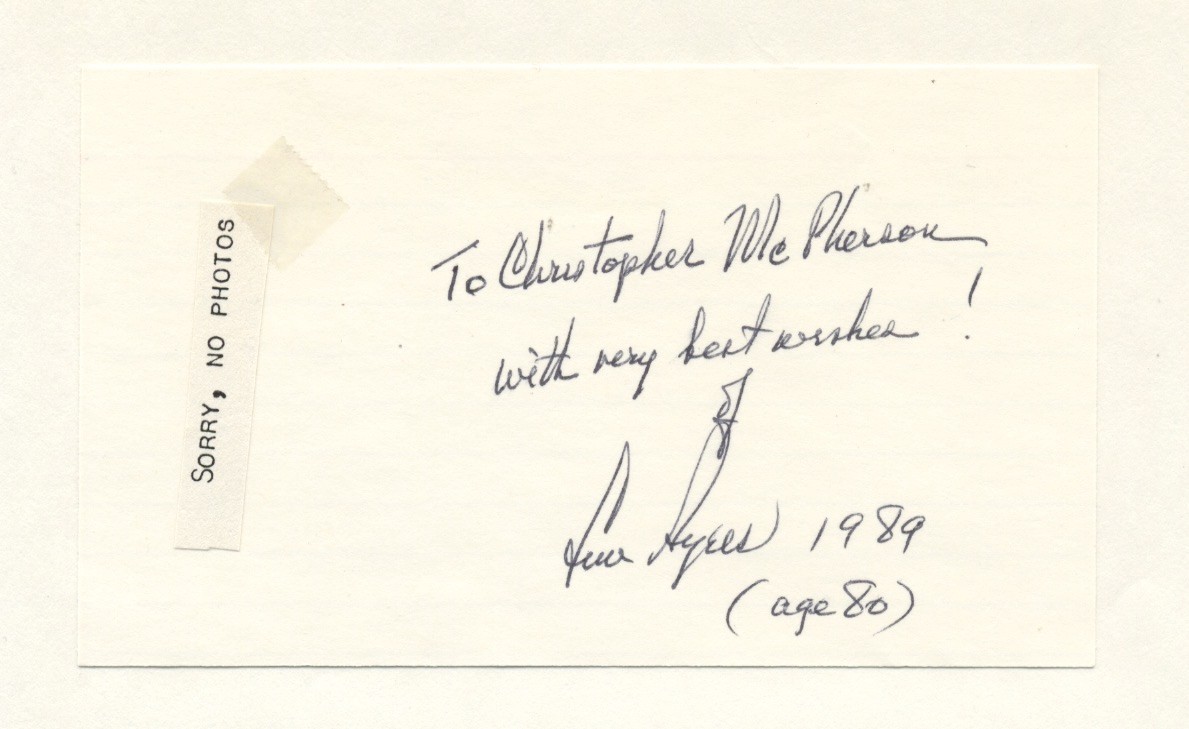 SORRY, NO PHOTOS
To Christopher McPherson
with very best wishes !
of
Lew Ayres 1989
(age 80)